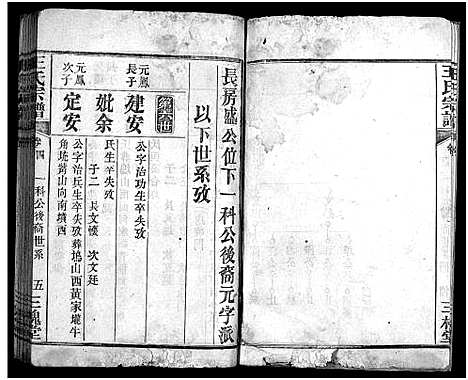 王氏宗譜
長房盛公位下一科公後裔元字派
以下世系攷
元鳳長子
建安
公字治功生卒失攷
妣余
氏生卒失攷
子二 長文㯹 次文廷
元鳳次子
定安
公字治兵生卒失攷葬塢山西黃家壠牛
角垅黃山向南墳西
王氏宗譜
卷四
一科公後裔世系
五
三槐堂